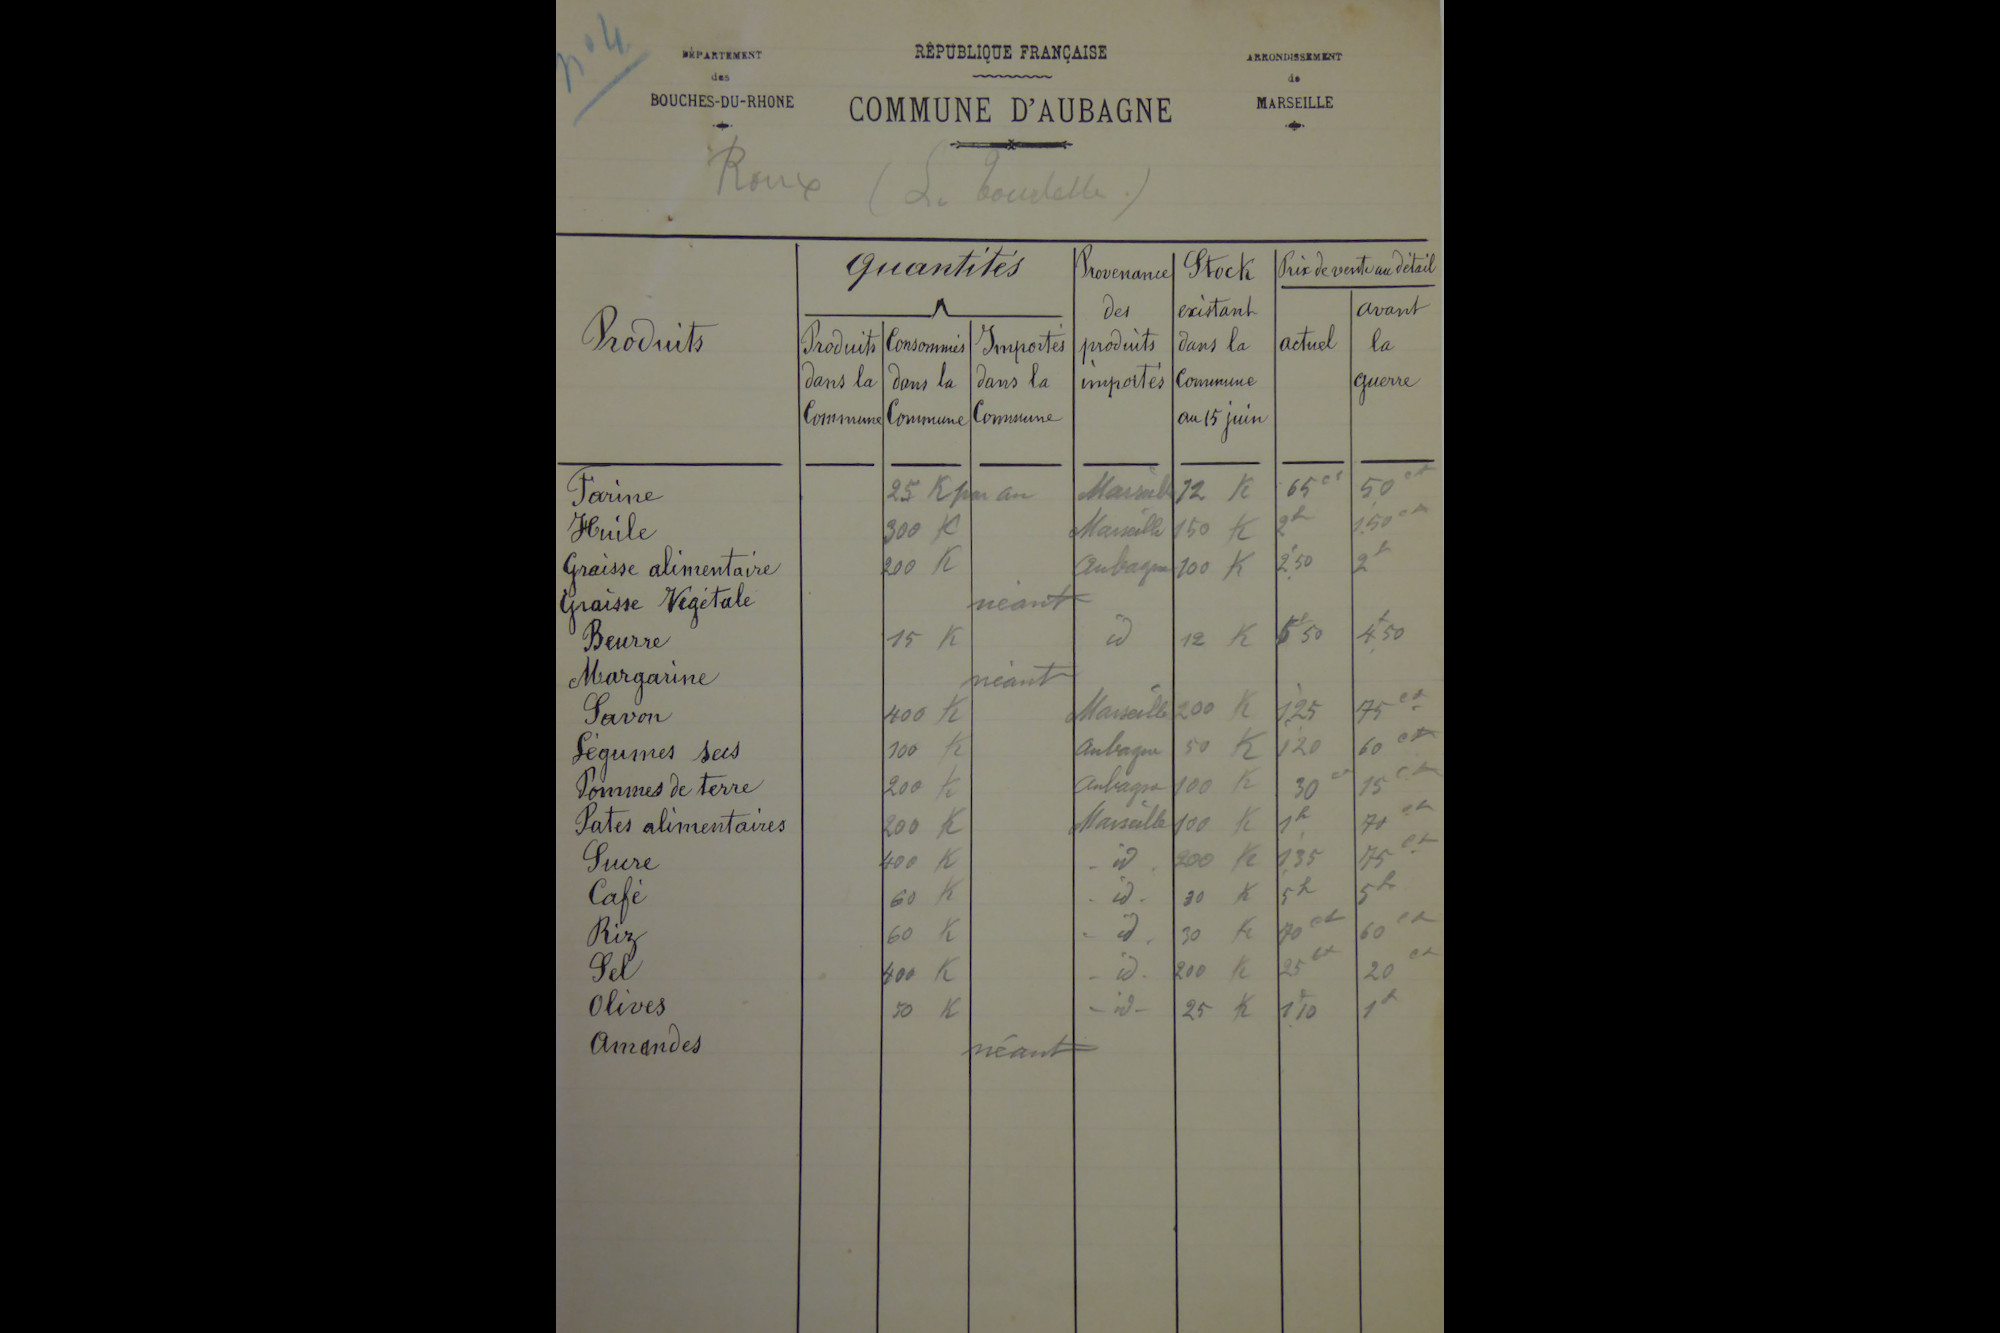 n° 4
DÉPARTEMENT
des
BOUCHES-DU-RHONE
RÉPUBLIQUE FRANÇAISE
COMMUNE D'AUBAGNE
ARRONDISSEMENT
de
MARSEILLE
Roux (La
Produits
Quantités
Produits dans la Commune
Consommés dans la Commune
Importés dans la Commune
Provenance des produits importés
Stock existant dans la Commune au 15 juin
Prix de vente au détail
actuel
avant la guerre
Farine 25 K par an Marseille 12 K 65 ct 50 ct
Huile 300 K Marseille 150 K 2 f 1,50 ct
Graisse alimentaire 200 K Aubagne 100 K 2,50 2 f
Graisse Végétale néant
Beurre 15 K id 12 K 50 4 f 50
Margarine néant
Savon 400 K Marseille 200 K 1,25 75 ct
Légumes secs 100 K Aubagne 50 K 1,20 60 ct
Pommes de terre 200 K Aubagne 100 K 30 ct 15 ct
Pates alimentaires 200 K Marseille 100 K 1 f 70 ct
Sucre 400 K - id - 200 K 1,35 75 ct
Café 60 K - id - 30 K 5 f 5 f
Riz 60 K - id - 30 K 70 ct 60 ct
Sel 400 K - id - 200 K 25 ct 20 ct
Olives 50 K - id - 25 K 1 f 10 1 f
Amandes néant